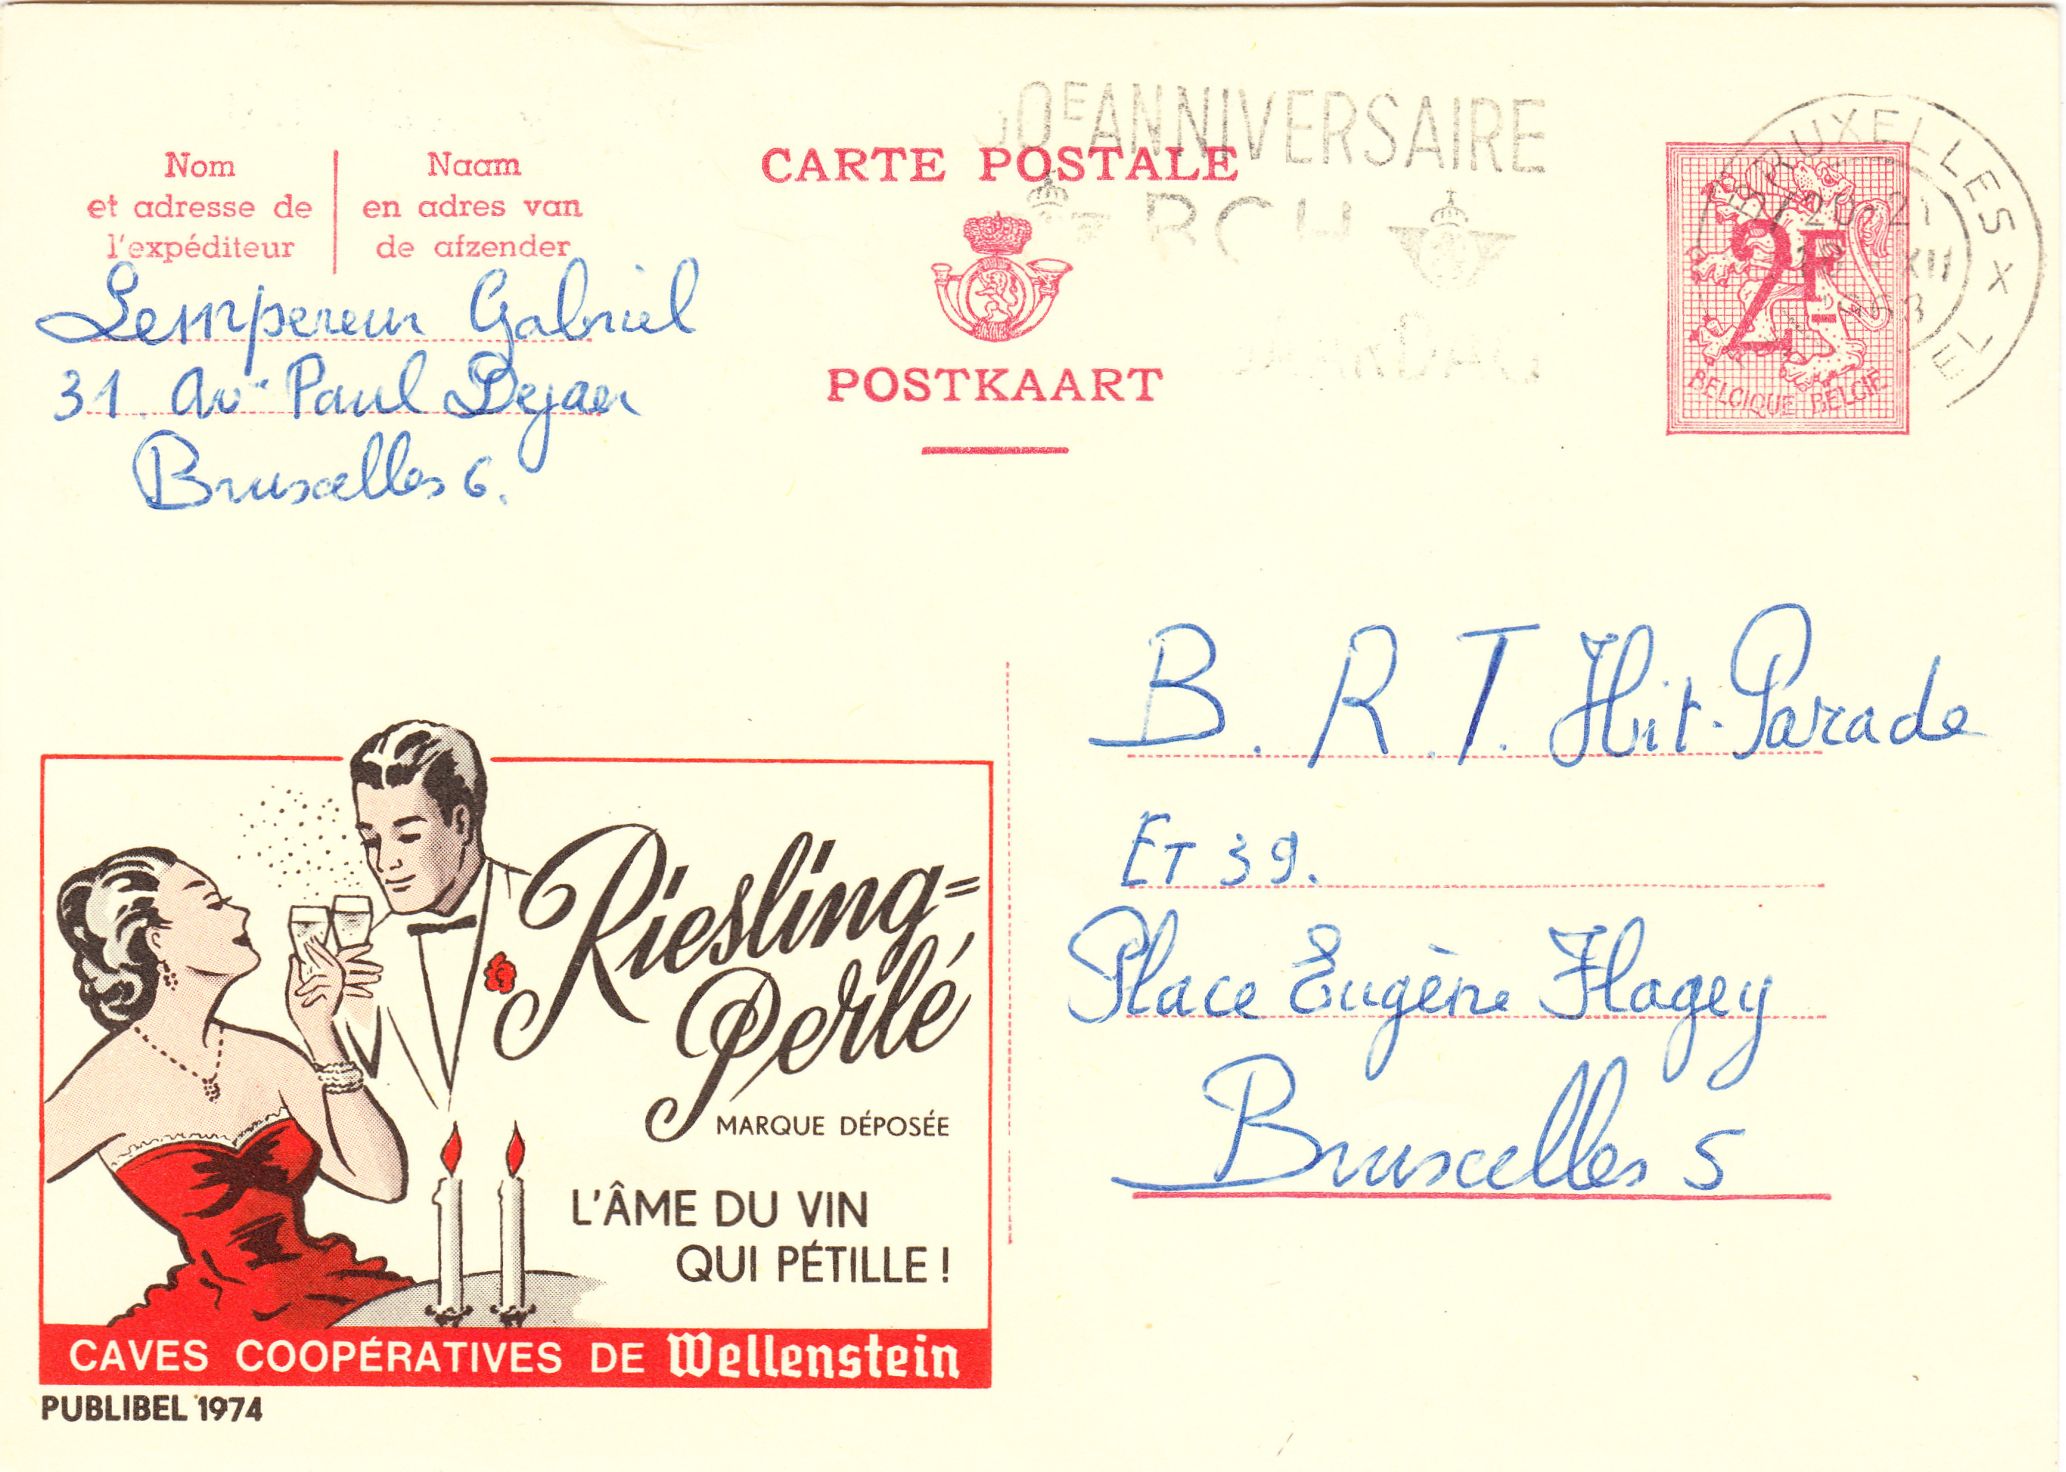 Nom
et adresse de
l'expéditeur
Naam
en adres van
de afzender
Lempereur Gabriel
31. Av Paul Dejaer
Bruxelles 6.
CARTE POSTALE
POSTKAART
0E ANNIVERSAIRE
BCH
BRUXELLES X
20-21
XII
2F
BELGIQUE BELGIË
B. R. T. Hit-Parade
ET 39.
Place Eugène Flagey
Bruxelles 5
Riesling=
Perlé
MARQUE DÉPOSÉE
L'ÂME DU VIN
QUI PÉTILLE !
CAVES COOPÉRATIVES DE Wellenstein
PUBLIBEL 1974